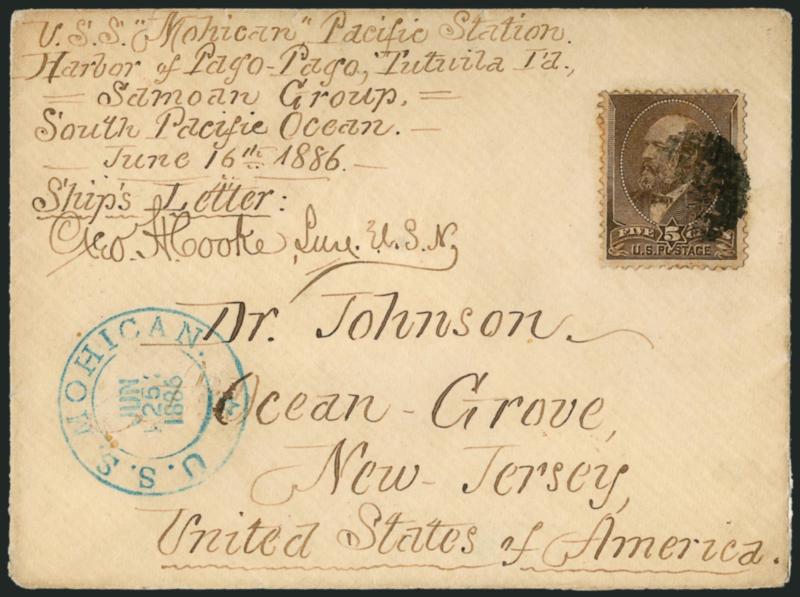 U.S.S. "Mohican" Pacific Station.
Harbor of Pago-Pago, Tutuila I'd.,
= Samoan Group, =
South Pacific Ocean. -
- June 16th 1886. -
Ship's Letter:
Geo. H. Cooke, Sur. U.S.N.
FIVE 5 CENTS
U.S. POSTAGE
Dr. Johnson.
U.S.S. MOHICAN.
JUN
25
1886
Ocean-Grove,
New-Jersey,
United States of America.